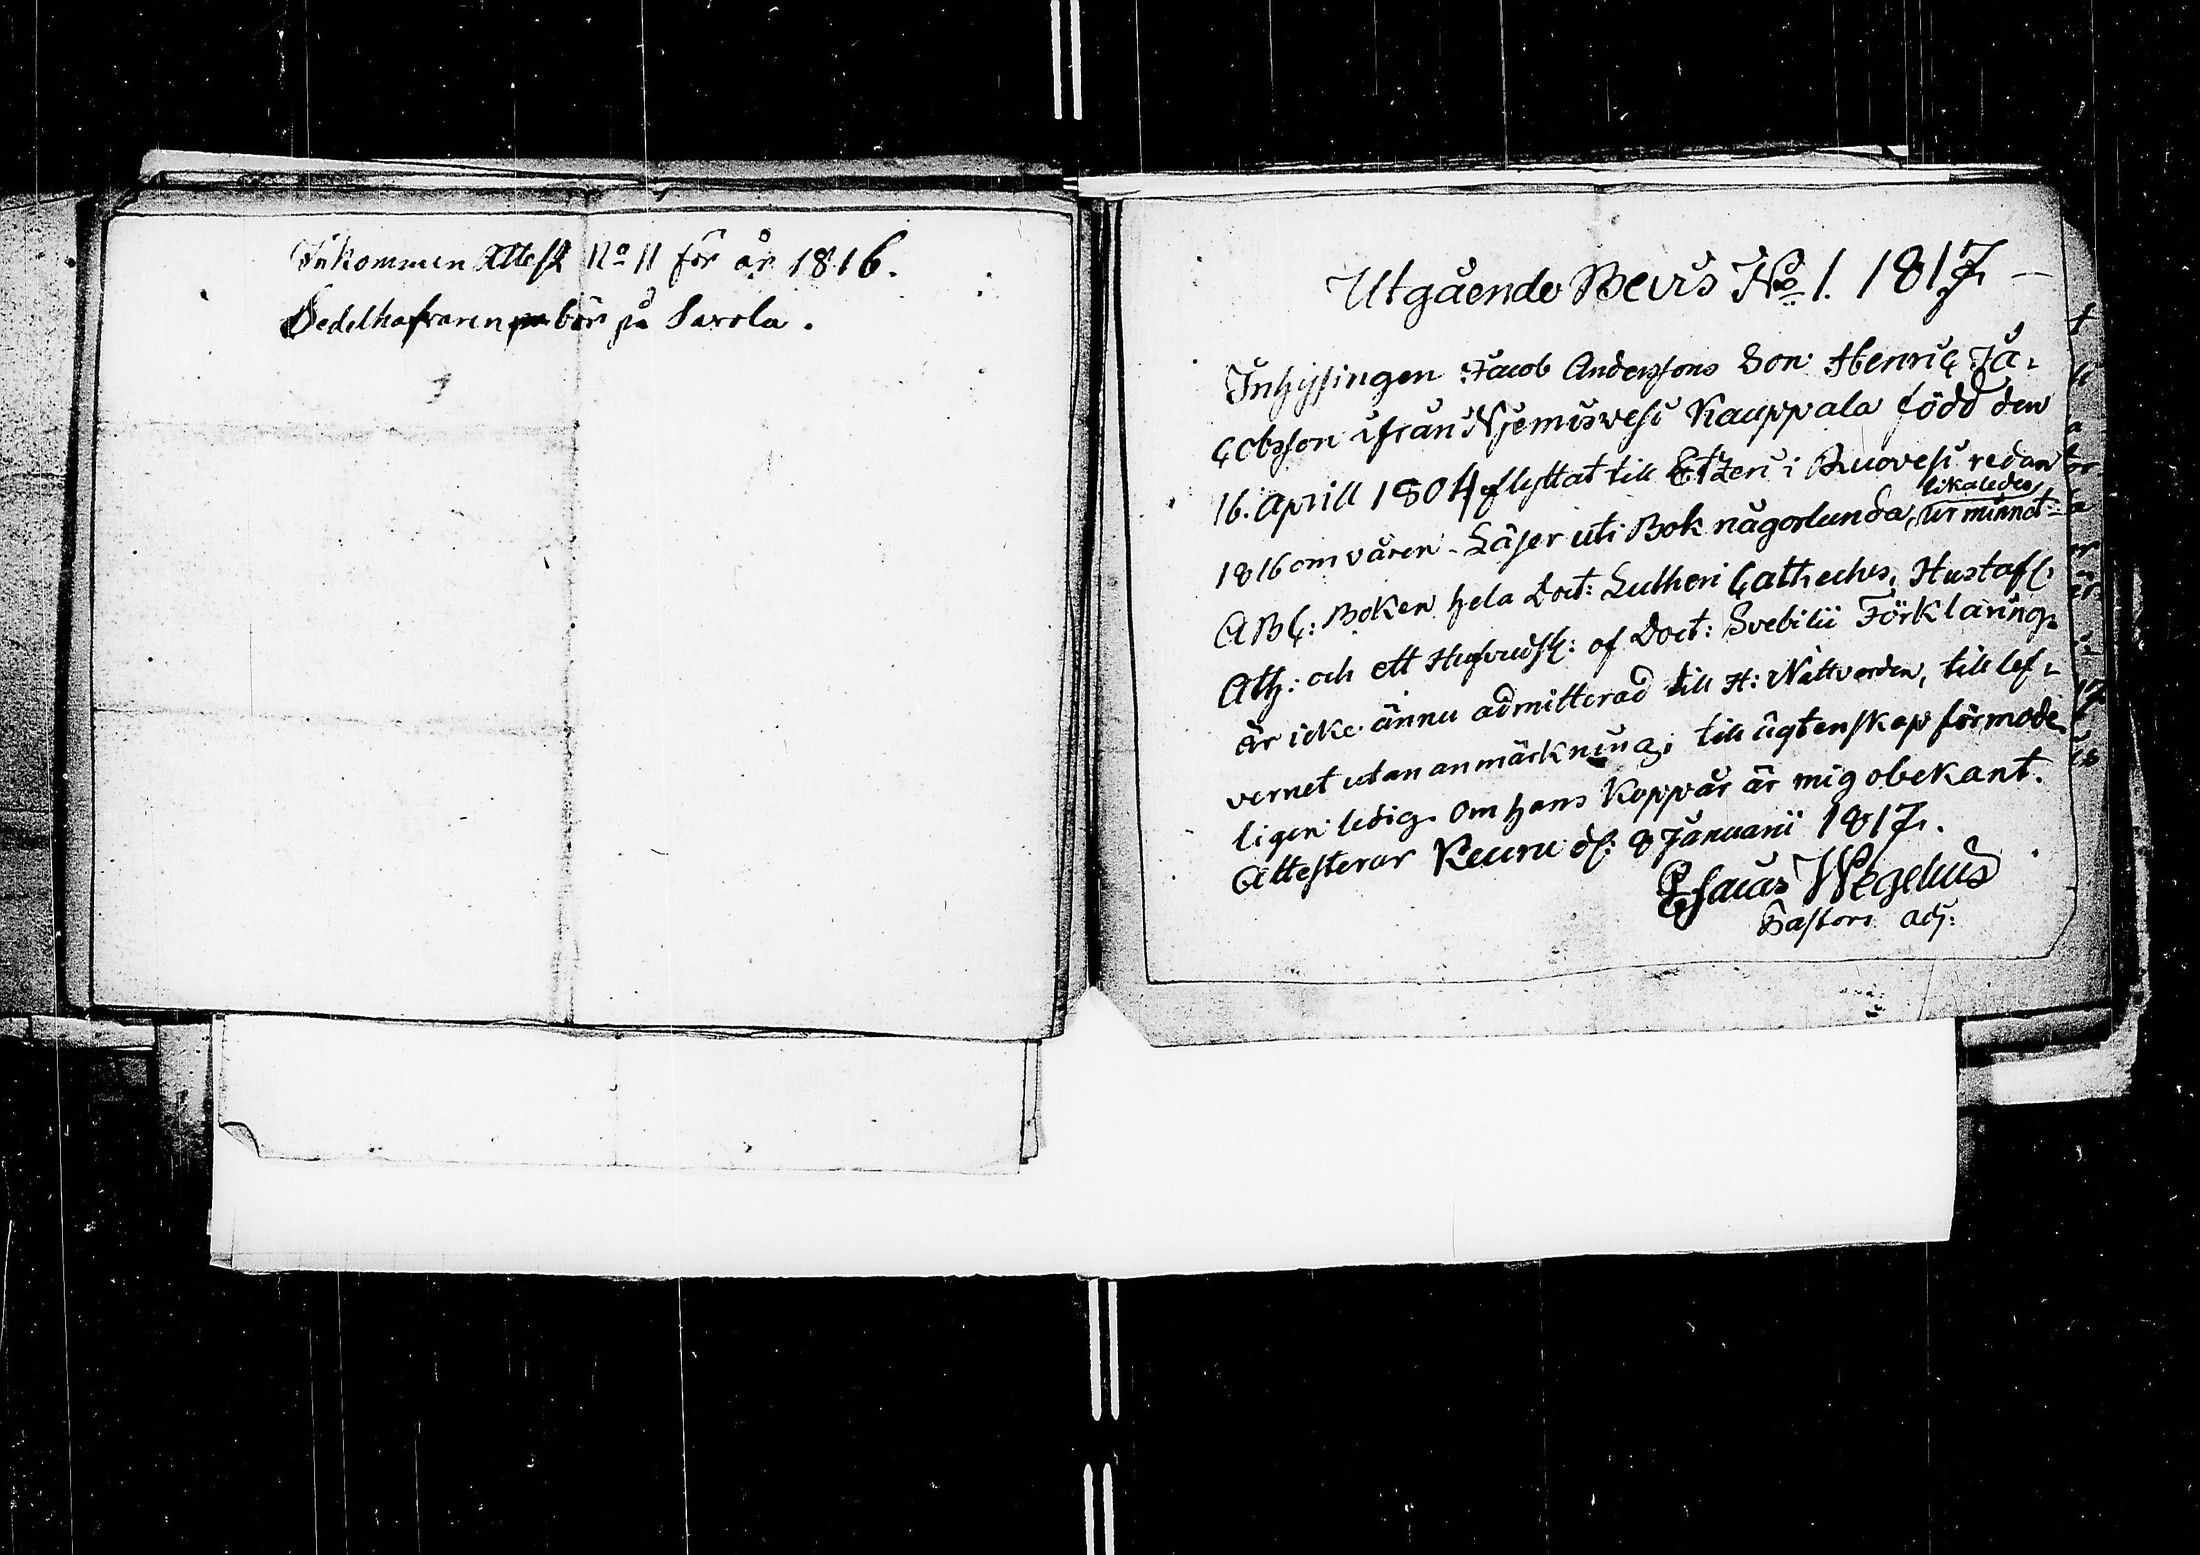 Inkommen Attest No 11 för år 1816.
Sedelhafvaren bör på Saxola.
Utgående Bevis No 1. 1817
Inhysingen Jacob Anderssons Son Henric Ja-
cobsson ifrån Njemisvesi Kauppala född den
16. Aprill 1804 flyttat till Etzeri i Ruovesi redan
1816 om våren - Läser uti Bok någorlunda, likaledes ur minnet
ABC: Boken hela Doct: Lutheri Catheches, Hustafl:
Ath: och ett Hufvudst: af Doct: Svebilii Förklaring.
är icke ännu admitterad till H: Nattvarden, till lef-
vernet utan anmärkning, till ägtenskap förmode
ligen ledig. Om hans Koppår är mig obekant.
Attesterar Keuru d: 8 Januarii 1817.
Esaias Wegelius
Pastors adj: